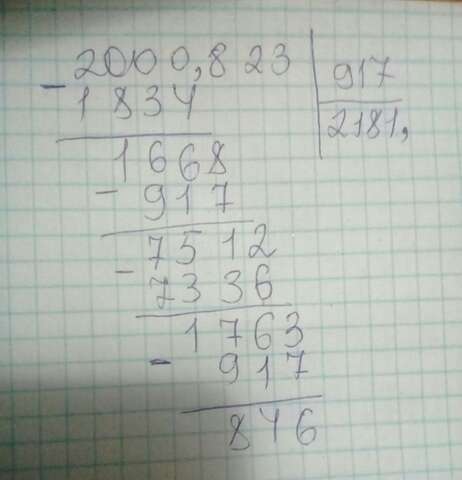 2000,823 917
- 1834 2181,
1668
- 917
7512
- 7336
1763
- 917
846